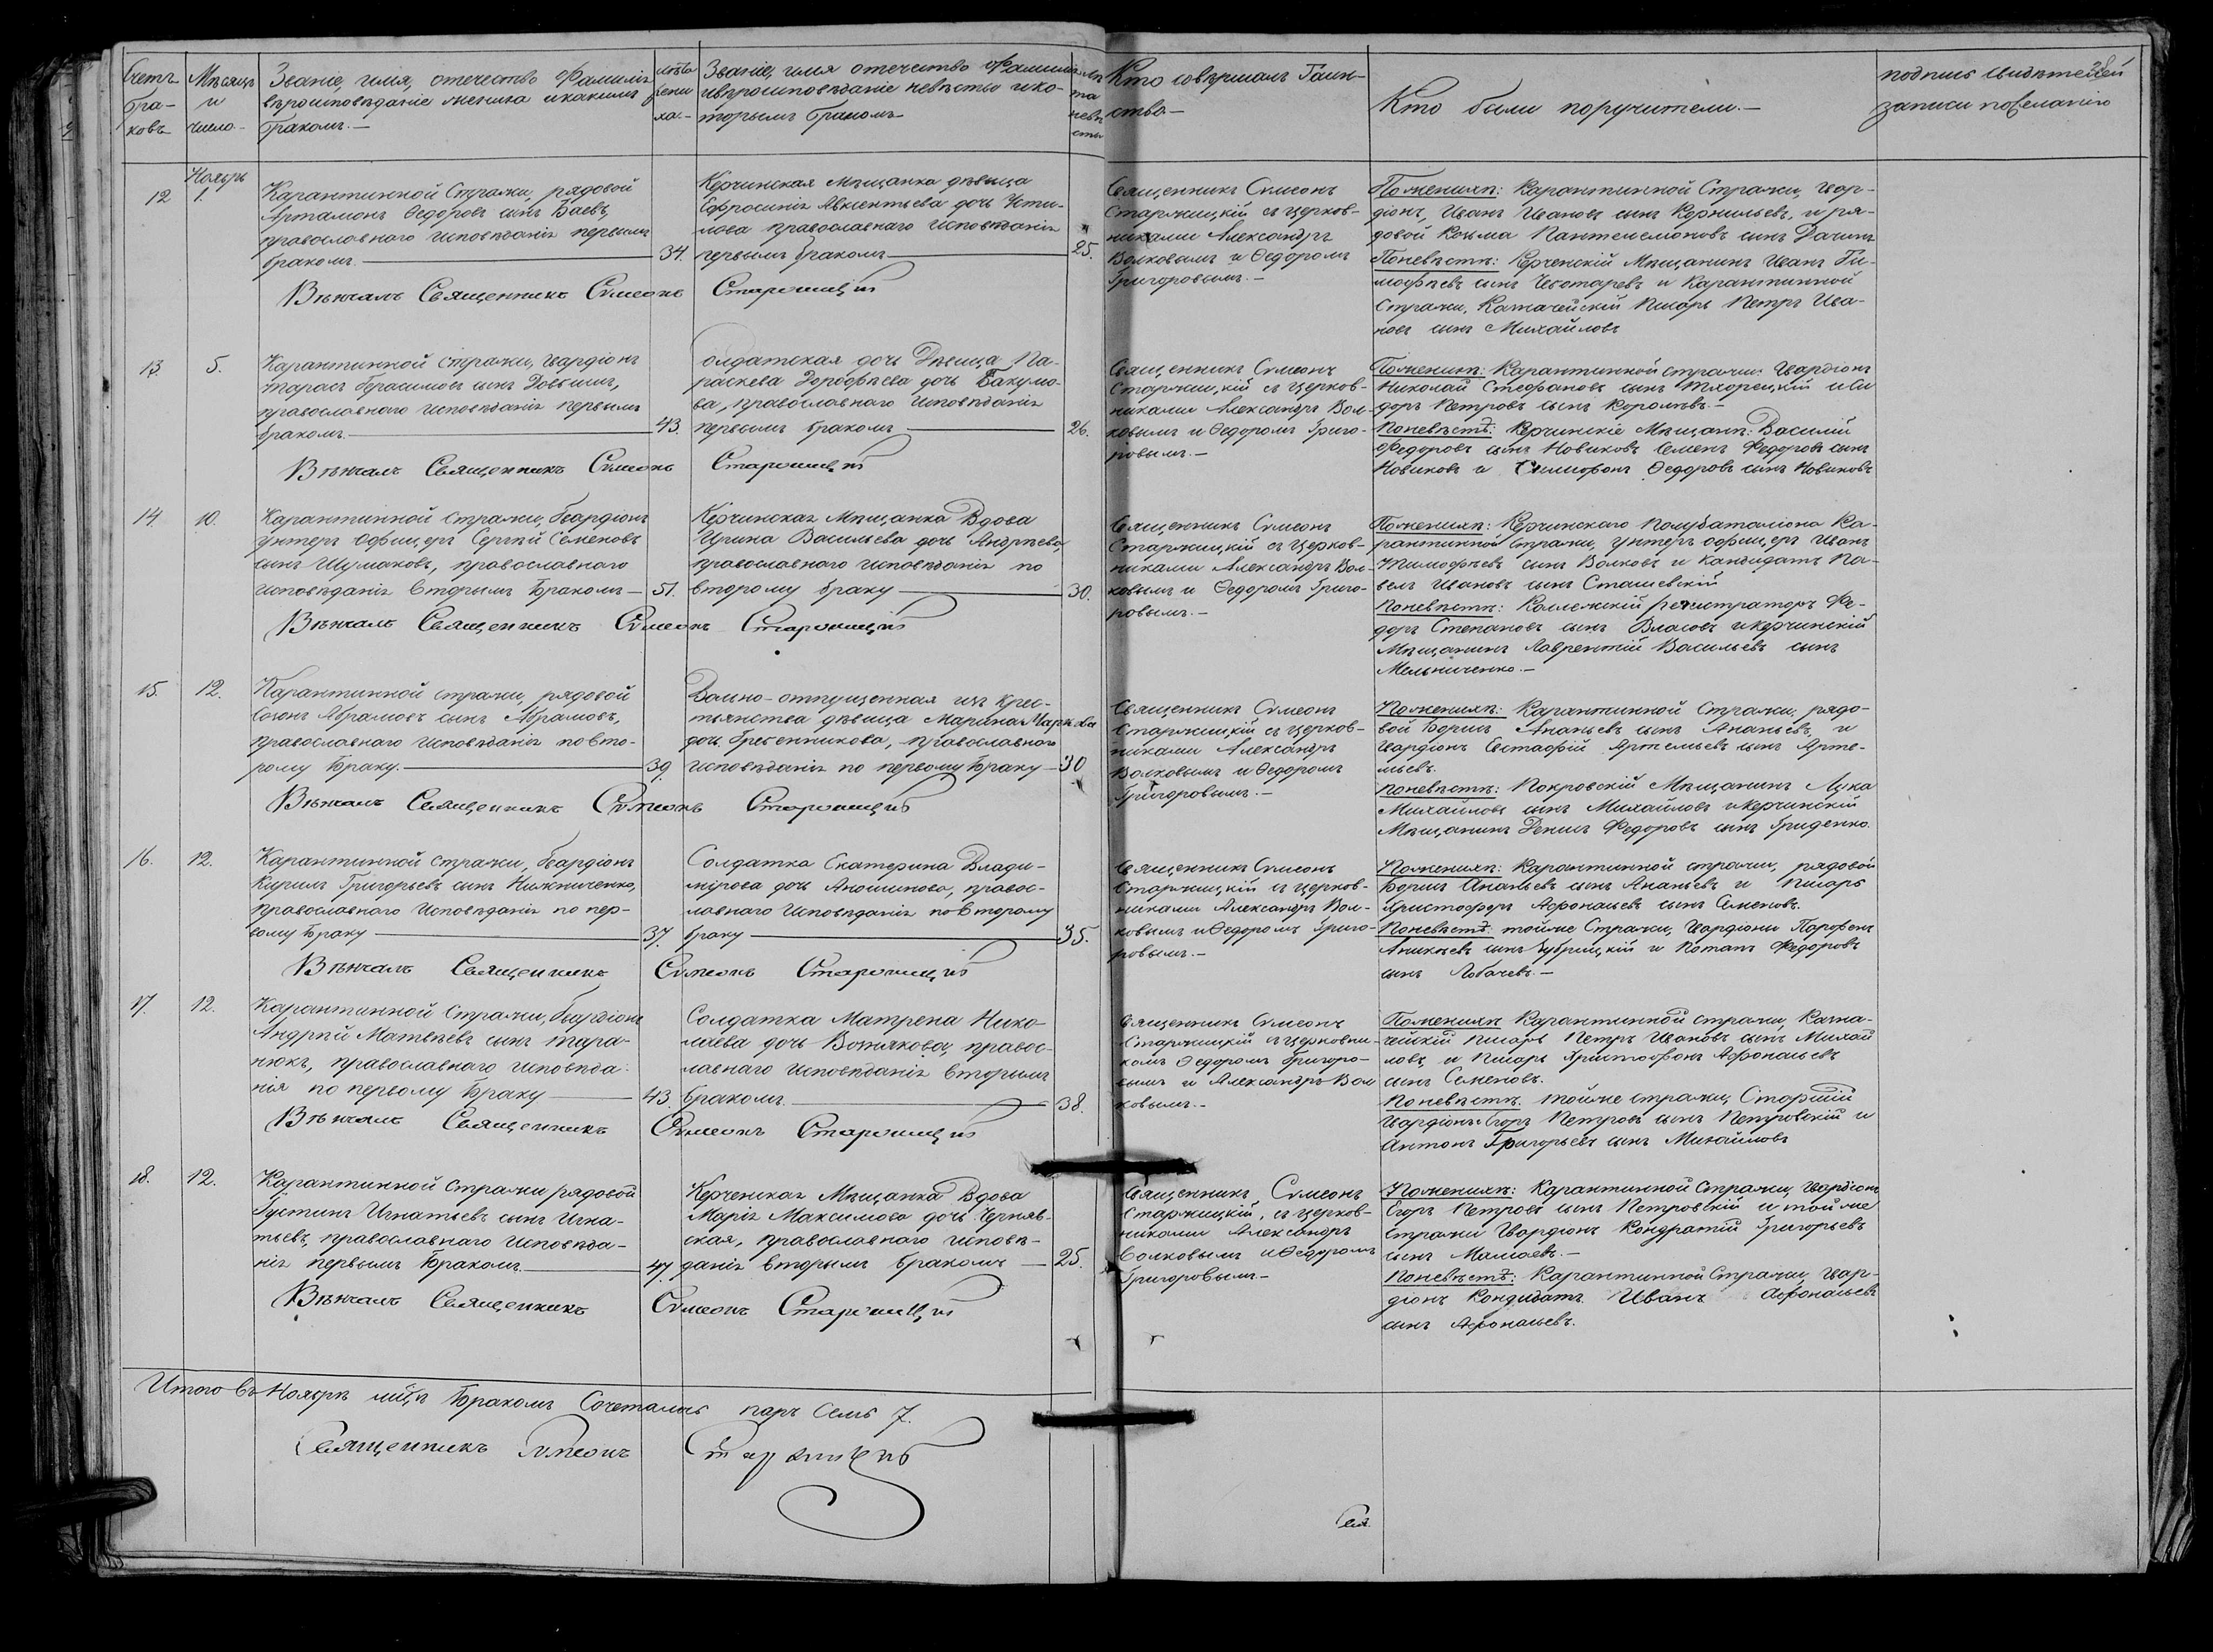 Счетъ
бра-
ковъ
Мѣсяцъ
и
число.
Званіе, имя, отечество Фамилія
вѣроисповѣданіе жениха и какимъ
бракомъ.—
лѣта
жени
ха.-
Званіе, имя отечество Фамилія
и вѣроисповѣданіе невѣсты и ко-
торымъ бракомъ
лѣ
та
невѣ
сты
Кто совершалъ Таин-
ство—
Кто были поручители.—
подпись свидѣтелей
записи по желанію
Ноябрь
12
1.
Карантинной Стражи, рядовой
Артамонъ Ѳедоровъ сынъ Баевъ,
православнаго исповѣданія первымъ
бракомъ.
34.
Керчинская Мѣщанка дѣвица
Ефросинія Авксентьева дочь Усти-
нова православнаго исповѣданія
первымъ бракомъ
25.
Священникъ Симеонъ
Старжицкій съ церков-
никами Александръ
Волковымъ и Ѳедоромъ
Григоровымъ.—
По женихѣ: Карантинной Стражи, гвар-
діонъ, Иванъ Ивановъ сынъ Корнильевъ, и ря-
довой Козьма Пантелемоновъ сынъ
По невѣстѣ: Керченскій Мѣщанинъ Иванъ Ти-
мофѣевъ сынъ Чеботаревъ и Карантинной
Стражи, Казначейскій Писарь Петръ Ива-
новъ сынъ Михайловъ
Вѣнчалъ Священникъ Симеонъ Старжицкій
13.
5.
Карантинной стражи, гвардіонъ
Тарасъ Герасимовъ сынъ Довбишъ,
православнаго исповѣданія первымъ
бракомъ.
43.
олдатская дочь Дѣвица Па-
раскева Дорофѣева дочь Бакумо-
ва, православнаго исповѣданія
первымъ бракомъ
26.
Священникъ Симеонъ
Старжицкій съ церков-
никами Александръ Вол-
ковымъ и Ѳедоромъ Григо-
ровымъ.—
По женихѣ: Карантинной стражи: Гвардіонъ
Николай Стефановъ сынъ и Си
доръ Петровъ сынъ Королевъ.—
По невѣстѣ: Керчинскіе Мѣщане: Василій
Федоровъ сынъ Новиковъ Семенъ Федоровъ сынъ
Новиковъ и Ѳедоровъ сынъ Новиковъ
Вѣнчалъ Священникъ Симеонъ Старжицкій
14.
10.
Карантинной стражи, Гвардіонъ
унтеръ офицеръ Сергѣй Семеновъ
сынъ Шумаковъ, православнаго
исповѣданія вторымъ Бракомъ—
51.
Керчинская Мѣщанка Вдова
Ирина Васильева дочь Андрѣева,
православнаго исповѣданія по
второму браку
30.
Священникъ Симеонъ
Старжицкій съ церков-
никами Александръ Вол-
ковымъ и Ѳедоромъ Григо-
ровымъ.—
По женихѣ: Керчинскаго полубаталіона Ка-
рантинной стражи, унтеръ офицеръ Иванъ
Тимофѣевъ сынъ Волковъ и Кандидатъ Па-
велъ Ивановъ сынъ Сташевскій
По невѣстѣ: Коллежскій регистраторъ Фе-
доръ Степановъ сынъ Власовъ и Керчинскій
Мѣщанинъ Лаврентій Васильевъ сынъ
Мельниченко.—
Вѣнчалъ Священникъ Симеонъ Старжицкій
15.
12.
Карантинной стражи, рядовой
Созонъ Абрамовъ сынъ Абрамовъ,
православнаго исповѣданія по вто-
рому браку.
39.
Вольно-отпущенная изъ крес-
тьянства дѣвица Марина Маркова
дочь Гребенникова, православнаго
исповѣданія по первому браку
30
Священникъ Симеонъ
Старжицкій съ церков-
никами Александръ
Волковымъ и Ѳедоромъ
Григоровымъ.—
По женихѣ: Карантинной Стражи, рядо-
вой Борисъ Ананьевъ сынъ Ананьевъ, и
гвардіонъ Евстафій Артемьевъ сынъ Арте-
мьевъ.
По невѣстѣ: Покровскій Мѣщанинъ Лука
Михайловъ сынъ Михайловъ и Керчинскій
Мѣщанинъ Денисъ Федоровъ сынъ Гриденко.
Вѣнчалъ Священникъ Симеонъ Старжицкій
16.
12.
Карантинной стражи, Гвардіонъ
Кирилъ Григорьевъ сынъ Нижниченко,
православнаго исповѣданія по пер-
вому браку
37.
Солдатка Екатерина Влади-
мірова дочь Аношинова, правос-
лавнаго исповѣданія по второму
браку
35.
Священникъ Симеонъ
Старжицкій съ церков-
никами Александръ Вол-
ковымъ и Ѳедоромъ Григо-
ровымъ.—
По женихѣ: Карантинной стражи, рядовой
Борисъ Ананьевъ сынъ Ананьевъ и писарь
Христофоръ Афонасьевъ сынъ Семеновъ.
По невѣстѣ: тойже Стражи, Гвардіоны Парфенъ
Аникѣевъ сынъ и Потапъ Федоровъ
сынъ Лобачевъ.—
Вѣнчалъ Священникъ Симеонъ Старжицкій
17.
12.
Карантинной Стражи, Гвардіонъ
Андрѣй Матвѣевъ сынъ Тара-
нюкъ, православнаго исповѣда-
нія по первому браку
43.
Солдатка Матрена Нико-
лаева дочь Вотякова, правос-
лавнаго исповѣданія вторымъ
бракомъ.
38.
Священникъ Симеонъ
Старжицкій съ церковни-
комъ Ѳедоромъ Григоро-
вымъ и Александръ Вол
ковымъ.—
По женихѣ Карантинной стражи, Казна-
чейскій писарь Петръ Ивановъ сынъ Михай
ловъ, и писарь Христофоръ Афонасьевъ
сынъ Семеновъ.
По невѣстѣ. тойже стражи, Старшій
гвардіонъ Егоръ Петровъ сынъ Петровскій и
Антонъ Григорьевъ сынъ Михайловъ
Вѣнчалъ Священникъ Симеонъ Старжицкій
18.
12.
Карантинной стражи рядовой
Густинъ Игнатьевъ сынъ Игна-
тьевъ, православнаго исповѣда-
нія первымъ бракомъ.
47.
Керченская Мѣщанка Вдова
Марія Максимова дочь Черняв-
ская, православнаго исповѣ-
данія вторымъ бракомъ
25.
Священникъ Симеонъ
Старжицкій, съ церков-
никами Александръ
Волковымъ и Ѳедоромъ
Григоровымъ—
По женихѣ: Карантинной Стражи, гвардіонъ
Егоръ Петровъ сынъ Петровскій и тойже
стражи Гвардіонъ Кондратій Григорьевъ
сынъ Мамаевъ.—
По невѣстѣ: Карантинной Стражи, гвар-
діонъ Кондидатъ Иванъ Афонасьевъ
сынъ Афонасьевъ.
Вѣнчалъ Священникъ Симеонъ Старжицкій
Итого въ Ноябрѣ мцѣ Бракомъ Сочеталось паръ Семь 7.
Священникъ Симеонъ Старжицкій